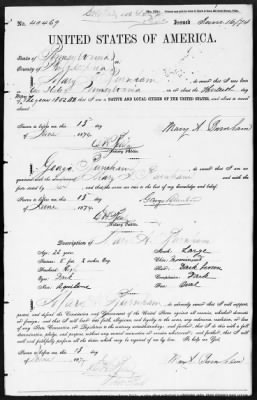 No. 40469 Issued June 16/74
UNITED STATES OF AMERICA.
State of Pennsylvania
County of
I, Mary Burnham do swear that I was born
in the State of Pennsylvania on the
day of that I am a NATIVE AND LOYAL CITIZEN OF THE UNITED STATES, and about to travel
abroad.
Sworn to before me, this 15 day
of June 1874 Mary A. Burnham
Notary Public.
I, George Burnham do swear that I am
acquainted with the above named Mary A. Burnham and with the
facts stated by her and that the same are true to the best of my knowledge and belief.
Sworn to before me, this 15 day
of June 1874 George Burnham
Notary Public.
Description of Mary A. Burnham
Age: 22 years Mouth: Large
Stature: 5 feet 2 inches Eng. Chin: Prominent
Forehead: High Hair: Dark brown
Eyes: Dark Complexion: Dark
Nose: Aquiline Face: Oval
I, Mary A. Burnham do solemnly swear that I will support,
protect, and defend the Constitution and Government of the United States against all enemies, whether domestic
or foreign; and that I will bear true faith, allegiance, and loyalty to the same, any ordinance, resolution, or law
of any State, Convention, or Legislature to the contrary notwithstanding; and further, that I do this with a full
determination, pledge, and purpose, without any mental reservation or evasion whatsoever; and further, that I will
well and faithfully perform all the duties which may be required of me by law. So help me God.
Sworn to before me, this 15 day
of June 1874 Mary A. Burnham